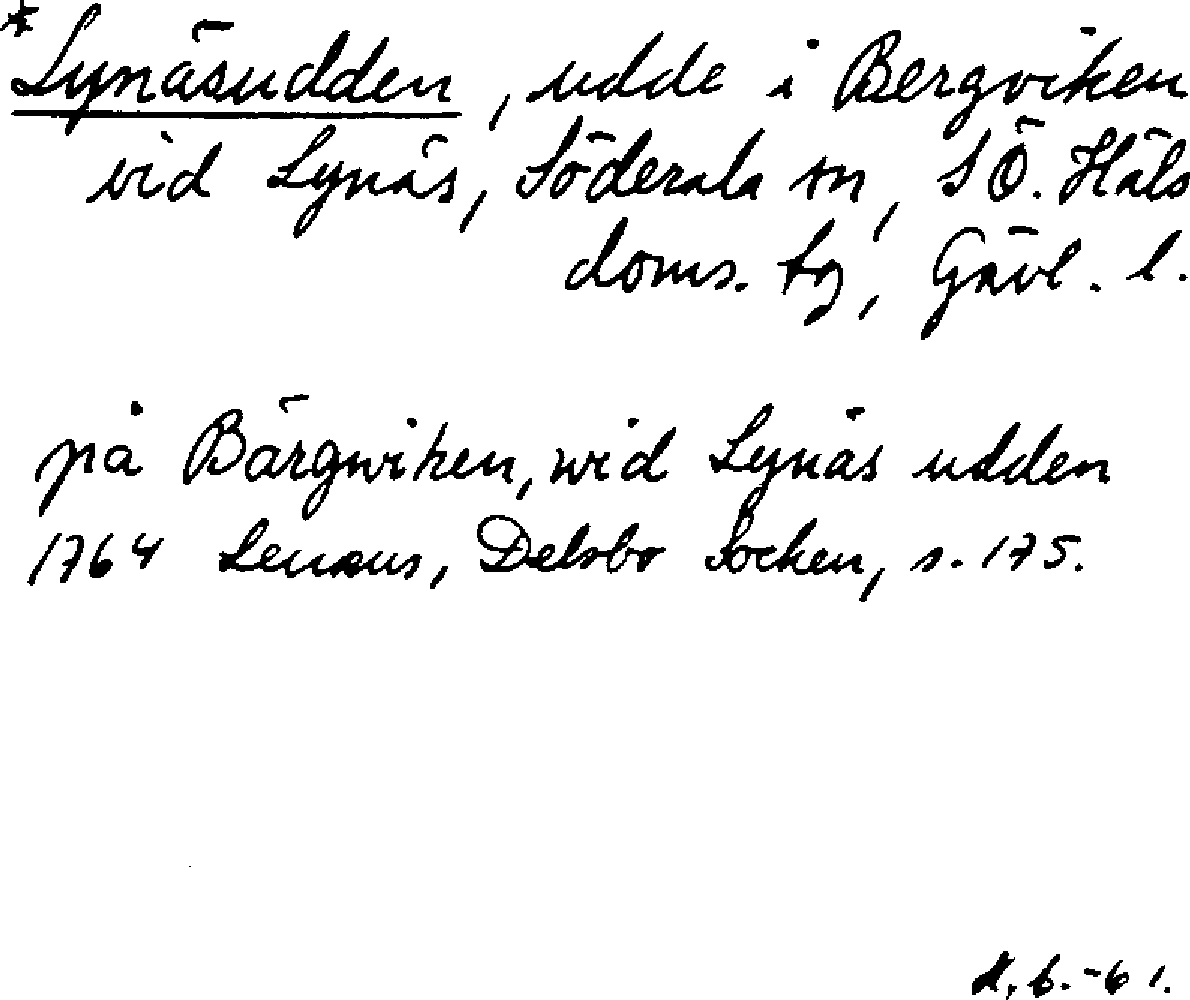 *Lynäsudden, udde i Bergviken
vid Lynäs, Söderala sn, SÖ. Häls
doms. tg, Gävl. l.
på Bärgwiken, wid Lynäs udden
1764 Lenæus, Delsbo Socken, s. 175.
-61.